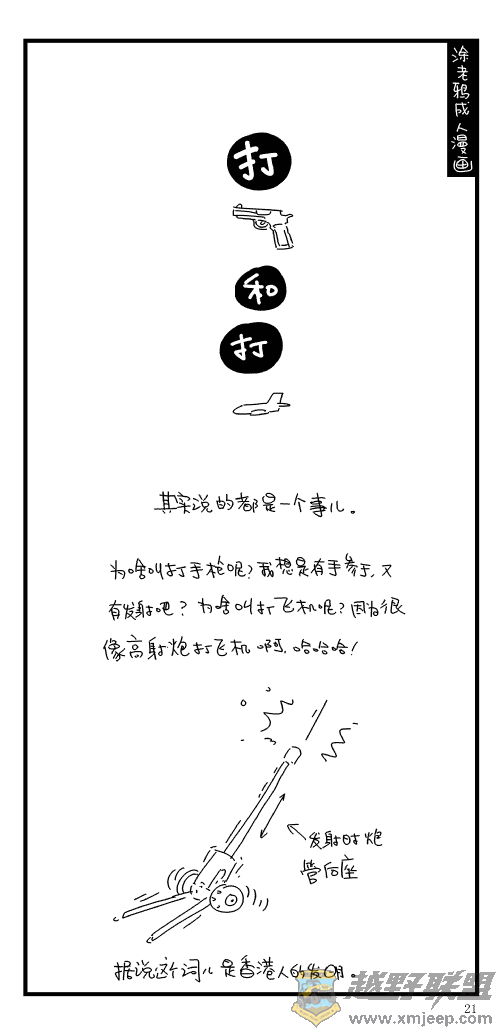 涂老鸦成人漫画
打
和
打
其实说的都是一个事儿。
为啥叫打手枪呢?我想是有手参于,又
有发射吧?为啥叫打飞机呢?因为很
像高射炮打飞机啊,哈哈哈!
发射时炮
管后座
据说这个词儿是香港人的发明。
越野联盟
21
www.xmjeep.com